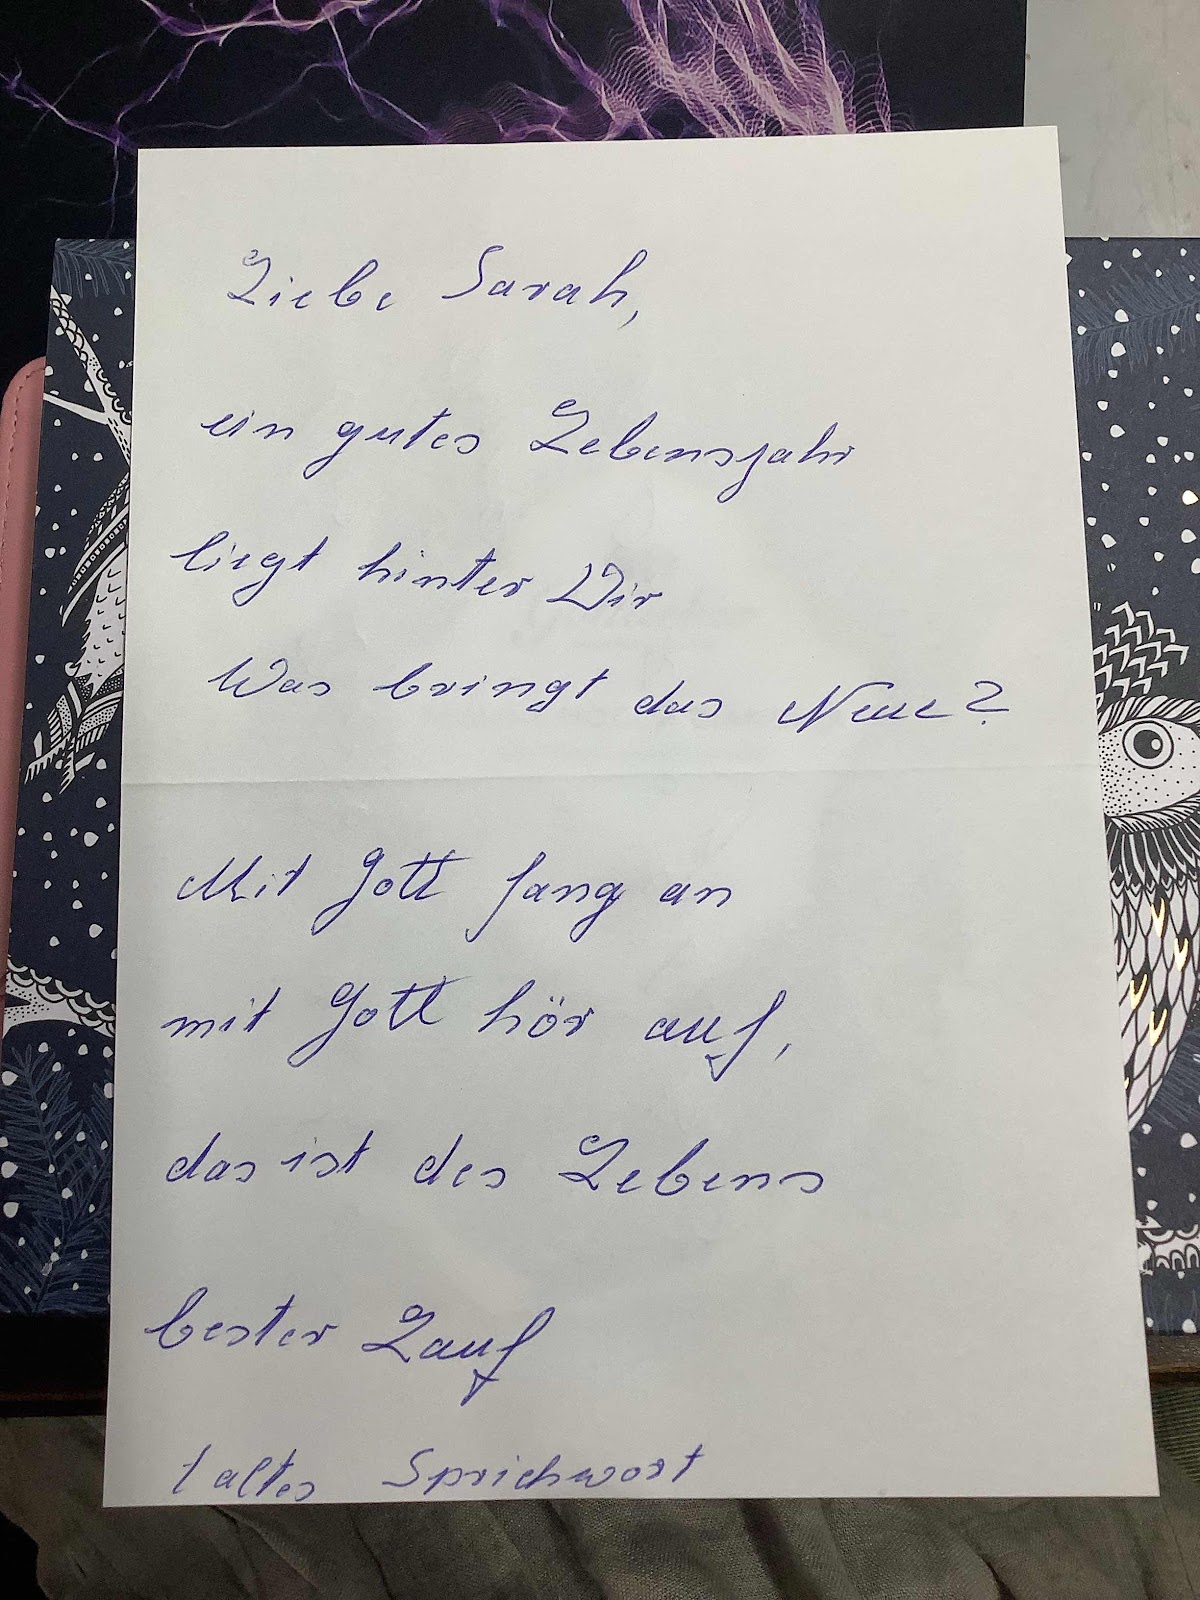 Liebe Sarah,
ein gutes Lebensjahr
liegt hinter Dir
Was bringt das Neue?
Mit Gott fang an
mit Gott hör auf,
das ist des Lebens
bester Lauf
1 altes Sprichwort